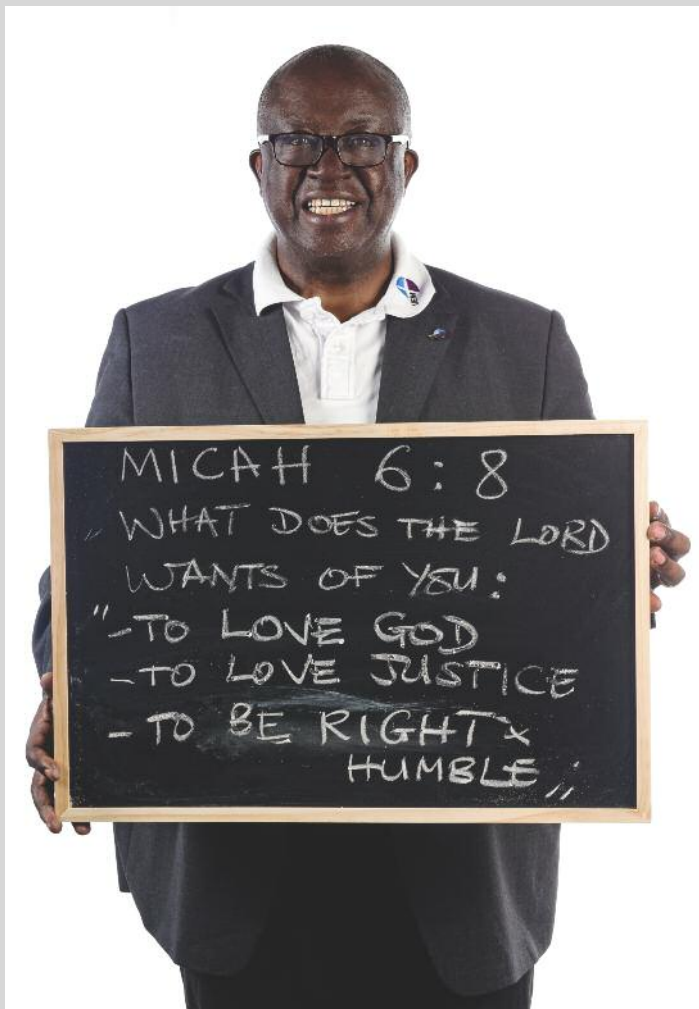 MICAH 6:8
" WHAT DOES THE LORD
WANTS OF YOU:
"-TO LOVE GOD
-TO LOVE JUSTICE
-TO BE RIGHT &
HUMBLE"